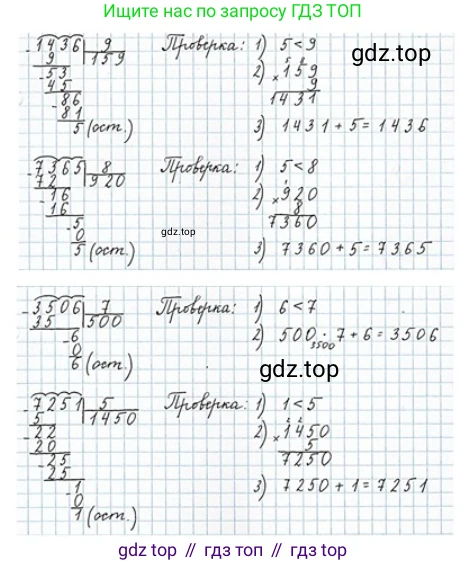 Ищите нас по запросу ГДЗ ТОП
1436 | 9 Проверка: 1) 5 < 9
9 159 2) 159
-53 × 9
45 1431
-86
81
5 (ост.) 3) 1431 + 5 = 1436
gdz.top
7365 | 8 Проверка: 1) 5 < 8
72 920 2) 920
-16 × 8
16 7360
-5
0
5 (ост.) 3) 7360 + 5 = 7365
3506 | 7 Проверка: 1) 6 < 7
35 500 2) 500 · 7 + 6 = 3506
-6 3500
0
6 (ост.)
gdz.top
7251 | 5 Проверка: 1) 1 < 5
5 1450 2) 1450
-22 × 5
20 7250
-25
25
-1
0
1 (ост.) 3) 7250 + 1 = 7251
gdz.top // гдз.топ // gdz.top